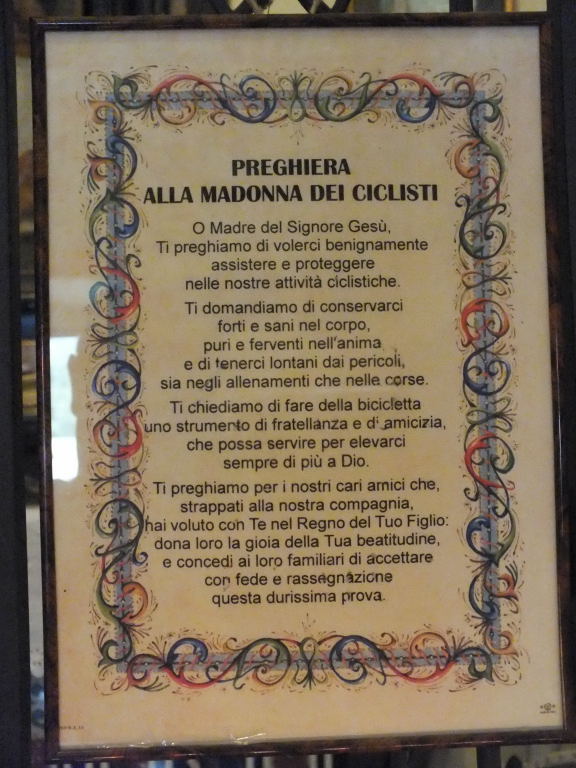 PREGHIERA
ALLA MADONNA DEI CICLISTI
O Madre del Signore Gesù,
Ti preghiamo di volerci benignamente
assistere e proteggere
nelle nostre attività ciclistiche.
Ti domandiamo di conservarci
forti e sani nel corpo,
puri e ferventi nell'anima
e di tenerci lontani dai pericoli,
sia negli allenamenti che nelle corse.
Ti chiediamo di fare della bicicletta
uno strumento di fratellanza e d'amicizia,
che possa servire per elevarci
sempre di più a Dio.
Ti preghiamo per i nostri cari amici che,
strappati alla nostra compagnia,
hai voluto con Te nel Regno del Tuo Figlio:
dona loro la gioia della Tua beatitudine,
e concedi ai loro familiari di accettare
con fede e rassegnazione
questa durissima prova.